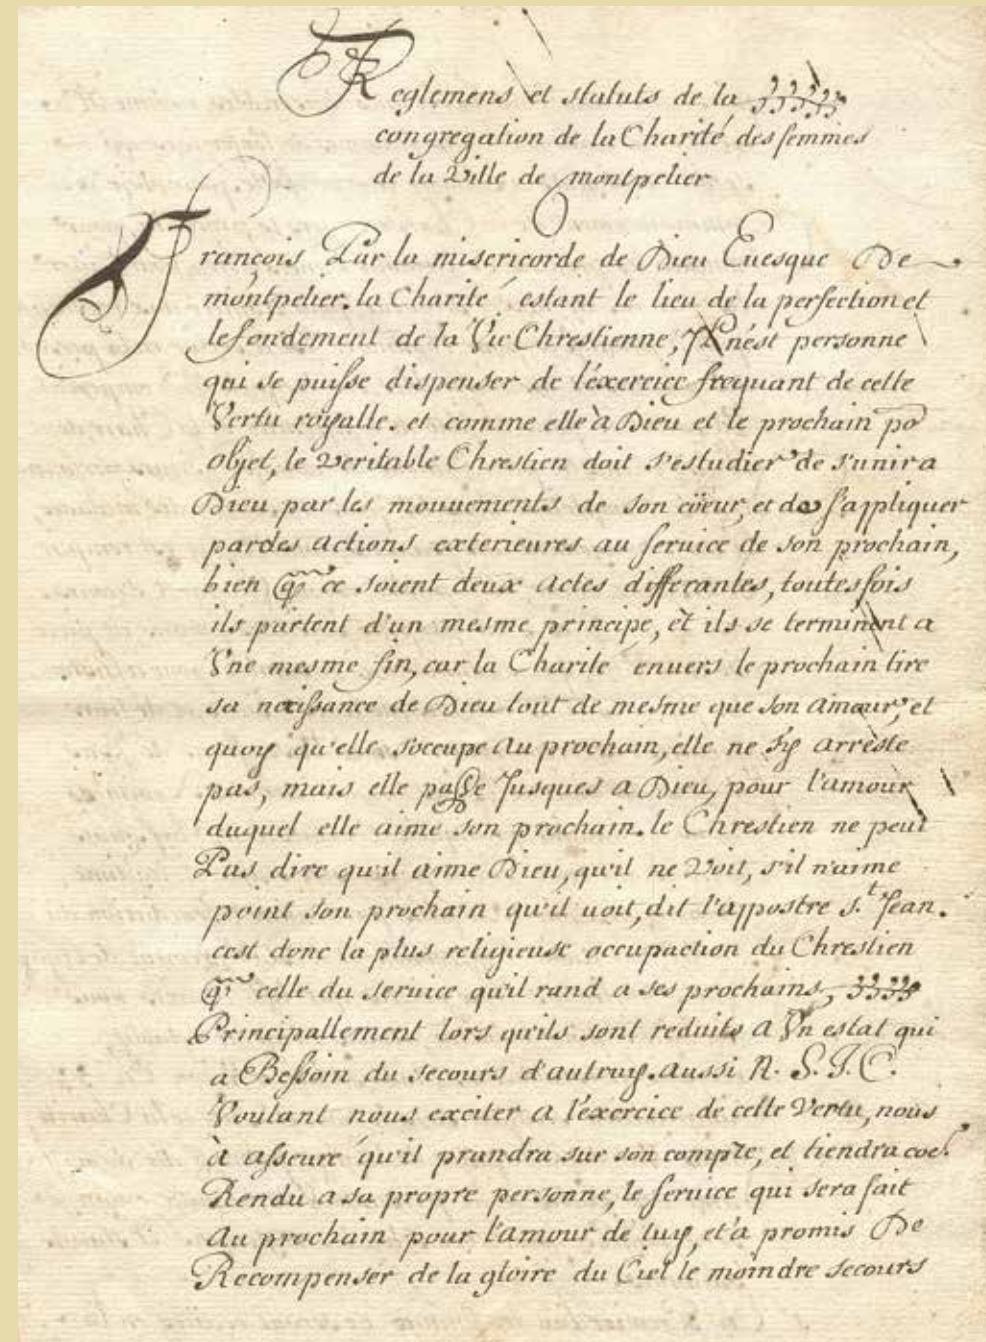 Reglemens et statuts de la
congregation de la Charité des femmes
de la Ville de montpelier
François Par la misericorde de Dieu Euesque De
montpelier. la Charité estant le lieu de la perfection et
le fondement de la Vie Chrestienne, Il nést personne
qui se puisse dispenser de léxercice frequant de cette
Vertu royalle. et comme elle à Dieu et le prochain po.r
objet, le veritable Chrestien doit s'estudier de s'unir a
Dieu, par les mouuements de son cöeur, et de s'appliquer
par des actions exterieures au seruice de son prochain,
bien q. ce soient deux actes differantes, toutesfois
ils partent d'un mesme principe, et ils se terminent a
Vne mesme fin, car la Charité enuers le prochain tire
sa naissance de Dieu tout de mesme que son amour, et
quoy qu'elle s'occupe au prochain, elle ne s'y arreste
pas, mais elle passe Jusques a Dieu, pour l'amour
duquel elle aime son prochain. le Chrestien ne peut
Pas dire qu'il aime Dieu, qu'il ne Voit, s'il n'aime
point son prochain qu'il uoit, dit l'appostre s.t Jean.
cest donc la plus religieuse occupaction du Chrestien
q. celle du seruice qu'il rand a ses prochains,
Principallement lors qu'ils sont reduits a Vn estat qui
a Bessoin du secours d'autruy. aussi N. S. J. C.
Voulant nous exciter a léxercice de cette Vertu, nous
à asseuré qu'il prandra sur son compte, et tiendra coe.
Rendu a sa propre personne, le seruice qui sera fait
Au prochain pour l'amour de luy, et a promis De
Recompenser de la gloire du Ciel le moindre secours